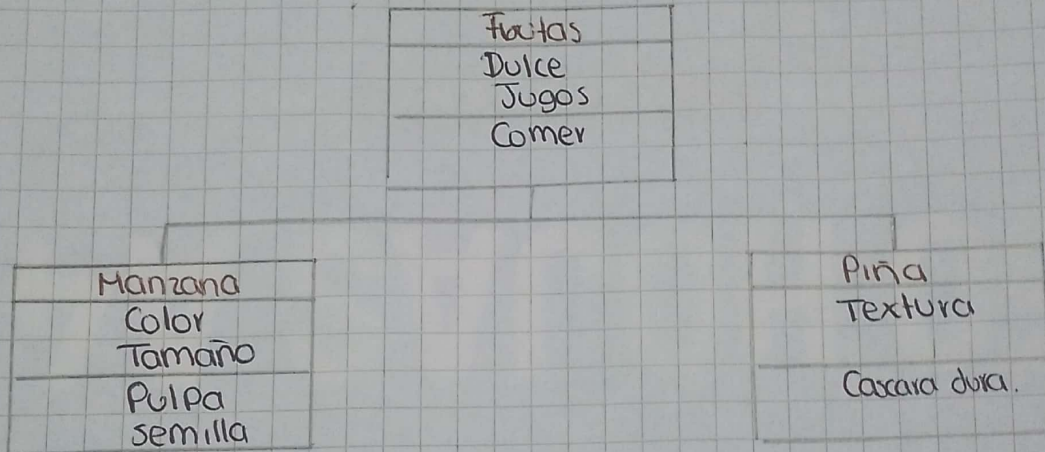 Frutas
Dulce
Jugos
Comer
Manzana
Color
Tamaño
Pulpa
semilla
Piña
Textura
Cascara dura.